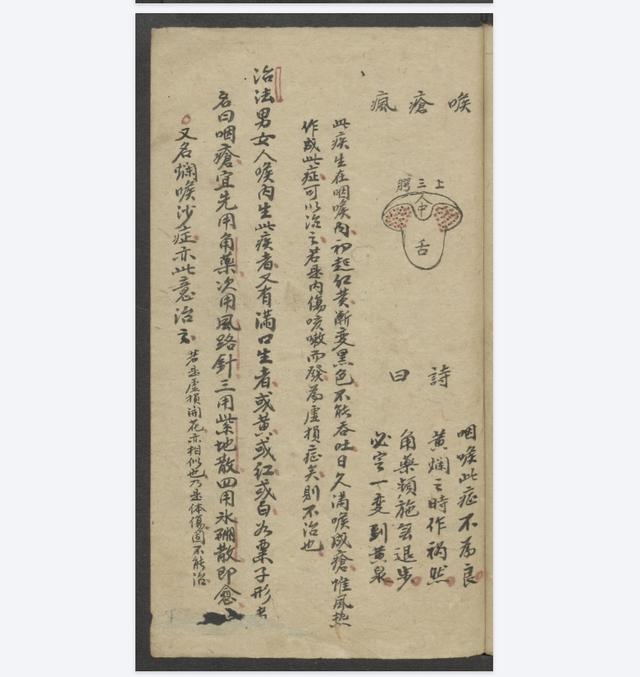 喉瘡瘋
上三腭
中
舌
詩曰
咽喉此症不為良
黃爛之時作祸然
角藥頻施無退步
必定一变到黄泉
此疾生在咽喉內初起紅黄漸变黑色不能吞吐日久满喉成瘡惟風热
作成此症可以治之若是內傷咳嗽而發為虛損症矣則不治也
治法男女人喉內生此疾者又有满口生者或黄或红或白如粟子形者
名曰咽瘡宜先用角藥次用風路針三用紫地散四用氷硼散即愈
又名爛喉沙症亦此意治之
若是虛損開花亦相似也乃是体傷固不能治